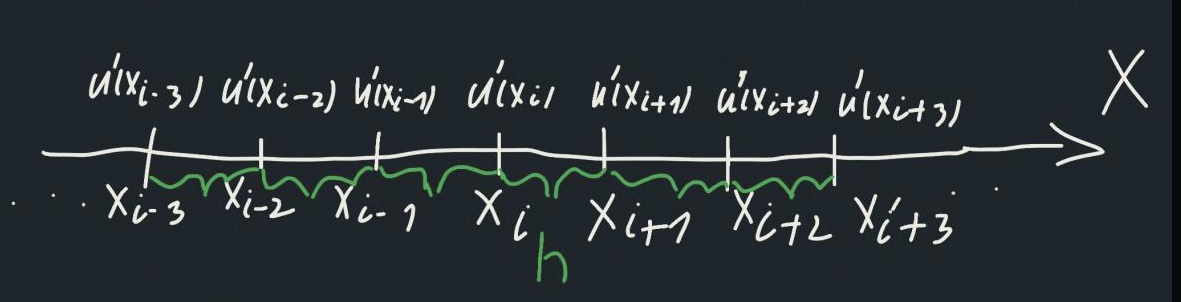 u'(x_{i-3}) u'(x_{i-2}) u'(x_{i-1}) u'(x_i) u'(x_{i+1}) u'(x_{i+2}) u'(x_{i+3}) X
. . . x_{i-3} x_{i-2} x_{i-1} x_i x_{i+1} x_{i+2} x_{i+3} . .
h